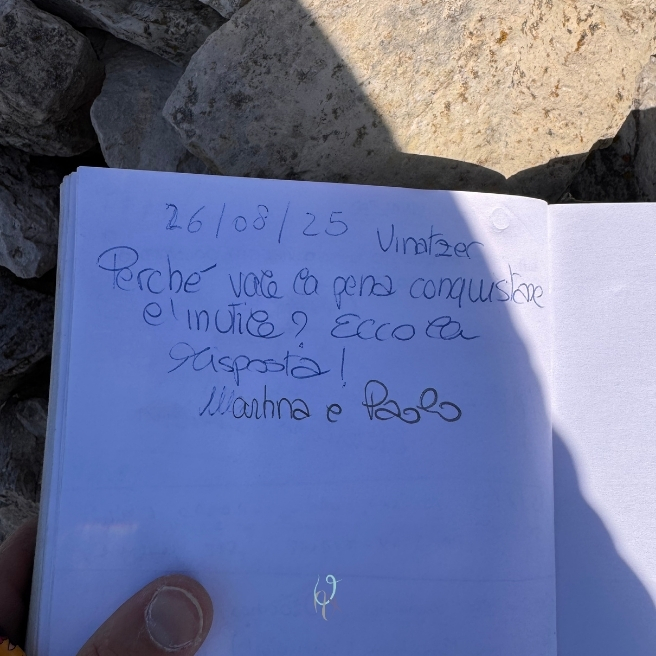 26/08/25 Vinatzer
Perché vale la pena conquistare
e' inutile? Ecco la
risposta!
Martina e Paolo